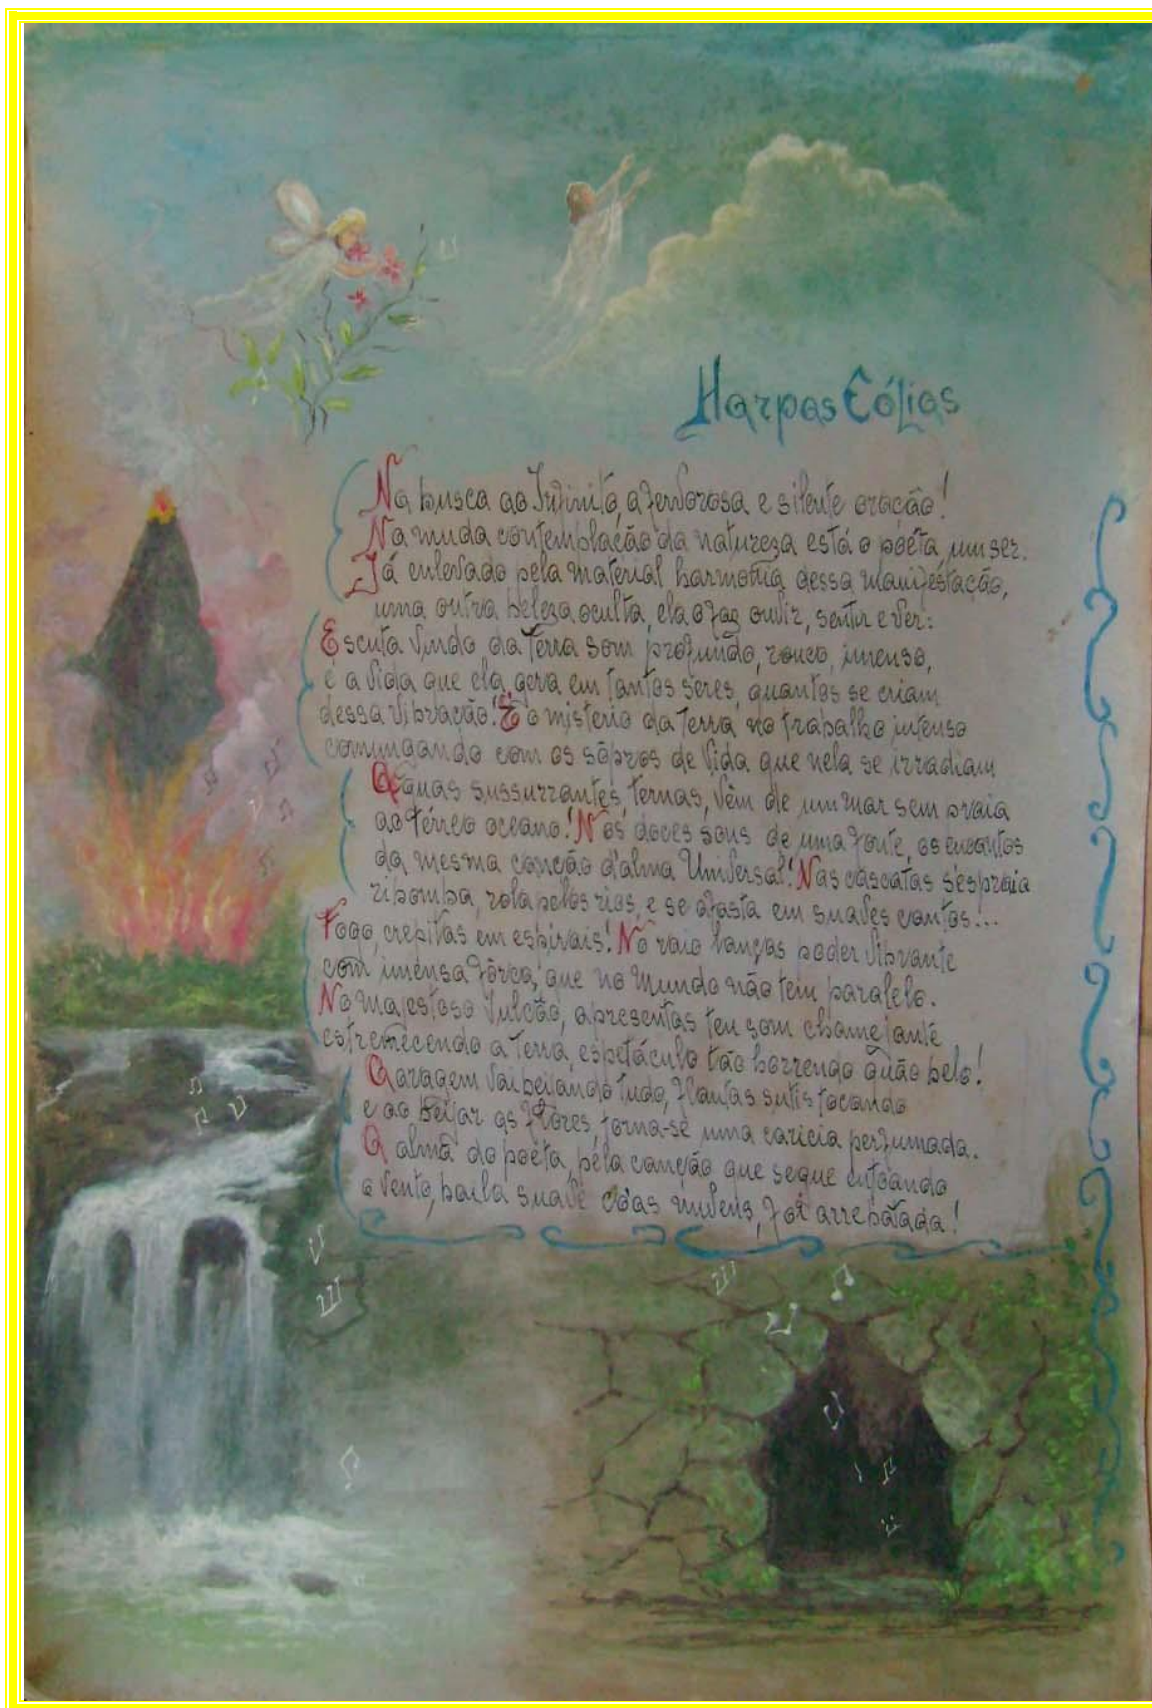 Harpas Eólias
Na busca ao Infinito, a fervorosa e silente oração!
Na muda contemplação da natureza está o poéta, um ser.
Já enlevado pela material harmonia dessa manifestação,
uma outra beleza oculta, ela o faz ouvir, sentir e ver:
Escuta vindo da Terra som profundo, rouco, imenso,
é a vida que ela gera em tantos seres, quantos se criam
dessa vibração! É o mistério da Terra no trabalho intenso
comungando com os sôpros de vida que nela se irradiam
Águas sussurrantes, ternas, vêm de um mar sem praia
ao térreo oceano! Nos doces sons de uma fonte, os encantos
da mesma canção d'alma Universal! Nas cascatas s'espraia
ribomba, rola pelos rios, e se afasta em suaves cantos!...
Fogo, crepitas em espirais! No raio lanças poder vibrante
com imensa fôrça, que no mundo não tem paralelo.
No majestoso Vulcão, apresentas teu som chamejante
estremecendo a Terra, espetáculo tão horrendo quão belo!
A aragem vai beijando tudo, flautas sutis tocando
e ao beijar as flôres, torna-se uma carícia perfumada.
A alma do poéta, pela canção que segue entoando
o vento, baila suave co'as nuvens, foi arrebatada!